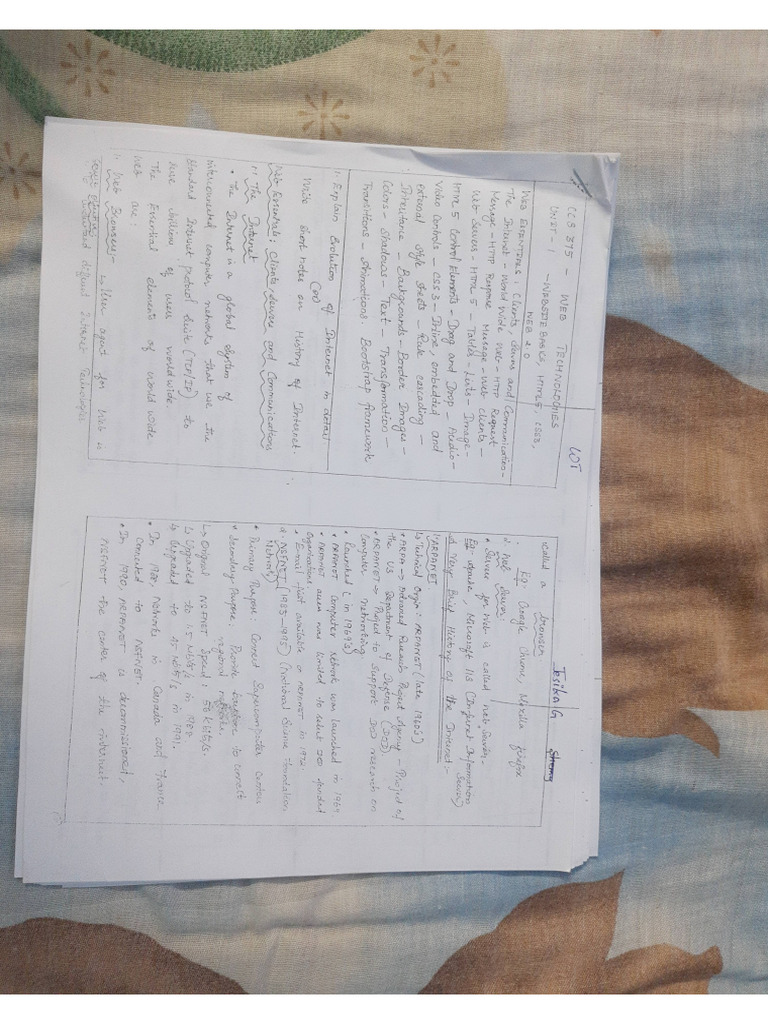 WT
CCS 375 - WEB TECHNOLOGIES
UNIT - 1 - WEBSITE BASICS, HTML5, CSS3,
WEB 2.0
Web Essentials: Clients, Servers and Communication-
The Internet - World Wide Web - HTTP Request
Message - HTTP Response Message - Web Clients -
Web Servers - HTML 5 - Tables - Lists - Image -
HTML 5 Control Elements - Drag and Drop Audio -
Video Controls - CSS 3 - Inline, embedded and
external Style Sheets - Rule Cascading -
Inheritance - Backgrounds - Border Images -
Colors - Shadows - Text - Transformation -
Transitions - Animations. Bootstrap framework
1. Explain Evolution of Internet in detail
(or)
Write short notes on History of Internet.
Web Essentials: Clients, Servers and Communications
The Internet
• The Internet is a global System of
interconnected computer networks that use the
Standard Internet protocol Suite (TCP/IP) to
serve billions of users worldwide.
The Essential elements of World Wide
Web are:
Web Browsers - User agent for Web is
Jesika G
Called a browser
Eg: Google Chrome, Mozilla firefox
Web Server:
• Server for Web is called Web Server.
Eg: Apache, Microsoft IIS (Internet Information
Server)
A Very Brief History of the Internet:-
1. ARPANET
Technical Origin: ARPANET (late 1960's)
• ARPA → Advanced Research Project Agency - Project of
the US Department of Defense (DOD).
• ARPANET → Project to Support DOD research on
Computer networking
Launched (in 1969's)
• ARPANET Computer Network was launched in 1969
• ARPANET access was limited to select DOD funded
Organizations.
• E-mail first available on ARPANET in 1972.
2. NSFNET (1985-1995) (National Science Foundation
Network)
• Primary Purpose: Connect Supercomputer Centers
• Secondary Purpose: Provide backbone to connect
regional networks.
↳ Original NSFNET Speed: 56 kbits/s.
↳ Upgraded to 1.5 Mbits/s in 1988
↳ Upgraded to 45 Mbits/s in 1991.
• In 1988, Networks in Canada and France
connected to NSFNET.
• In 1990, ARPANET is decommissioned,
NSFNET the center of the internet.